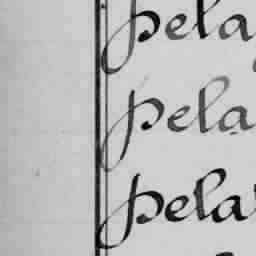 pela
pela
pela